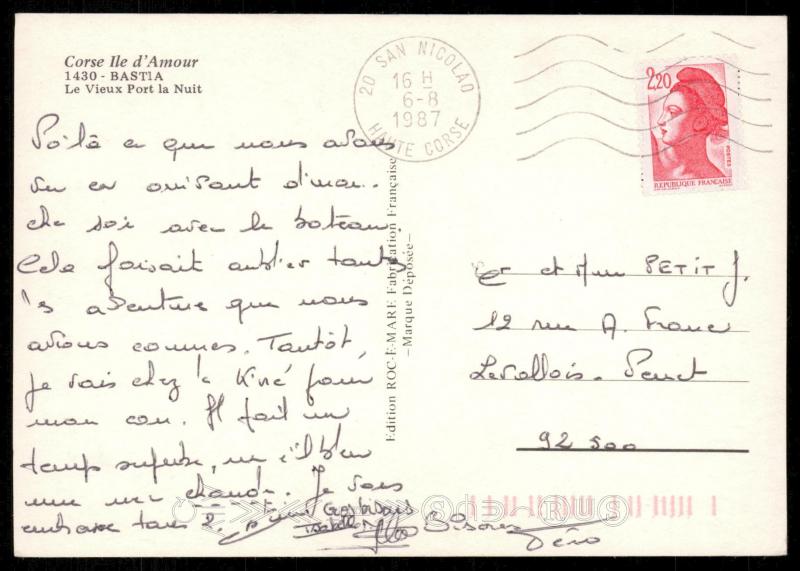 Corse Ile d'Amour
1430 - BASTIA
Le Vieux Port la Nuit
20 SAN NICOLAO
16 H
6-8
1987
HAUTE CORSE
2,20
POSTES
REPUBLIQUE FRANÇAISE
Voilà ce que nous avons
vu en arrivant diman..
che soir avec le bateau.
Cela faisait oublier toutes
les aventures que nous
avions connues. Tantôt,
je vais chez le Kiné pour
mon cou. Il fait un
temps superbe, un ciel bleu
une mer chaude. Je vous
embrasse tous 2.
Gros bisous
Isabelle
Bisous
Edition ROC-E-MARE Fabrication Française
—Marque Déposée—
et Mme PETIT J.
12 rue A. France
Levallois-Perret
92 300